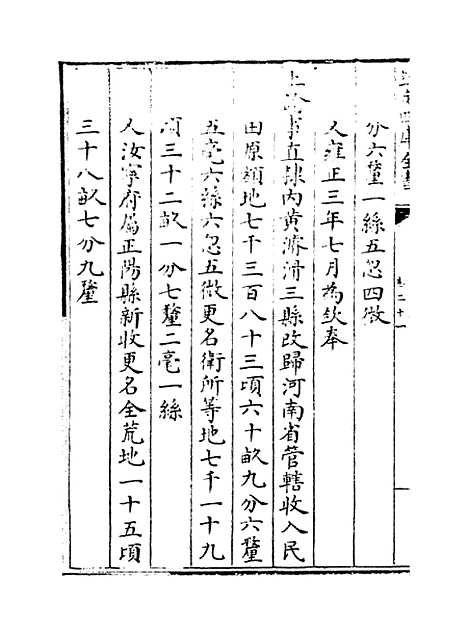 分六釐一絲五忽四微
又雍正三年七月為欽奉
上諭事直隸內黃濬滑三縣改歸河南省管轄收入民
田原額地七千三百八十三頃六十畝九分六釐
五毫六絲六忽五微更名衛所等地七千一十九
頃三十二畝一分七釐二毫一絲
又汝寧府屬正陽縣新收更名全荒地一十五頃
三十八畝七分九釐